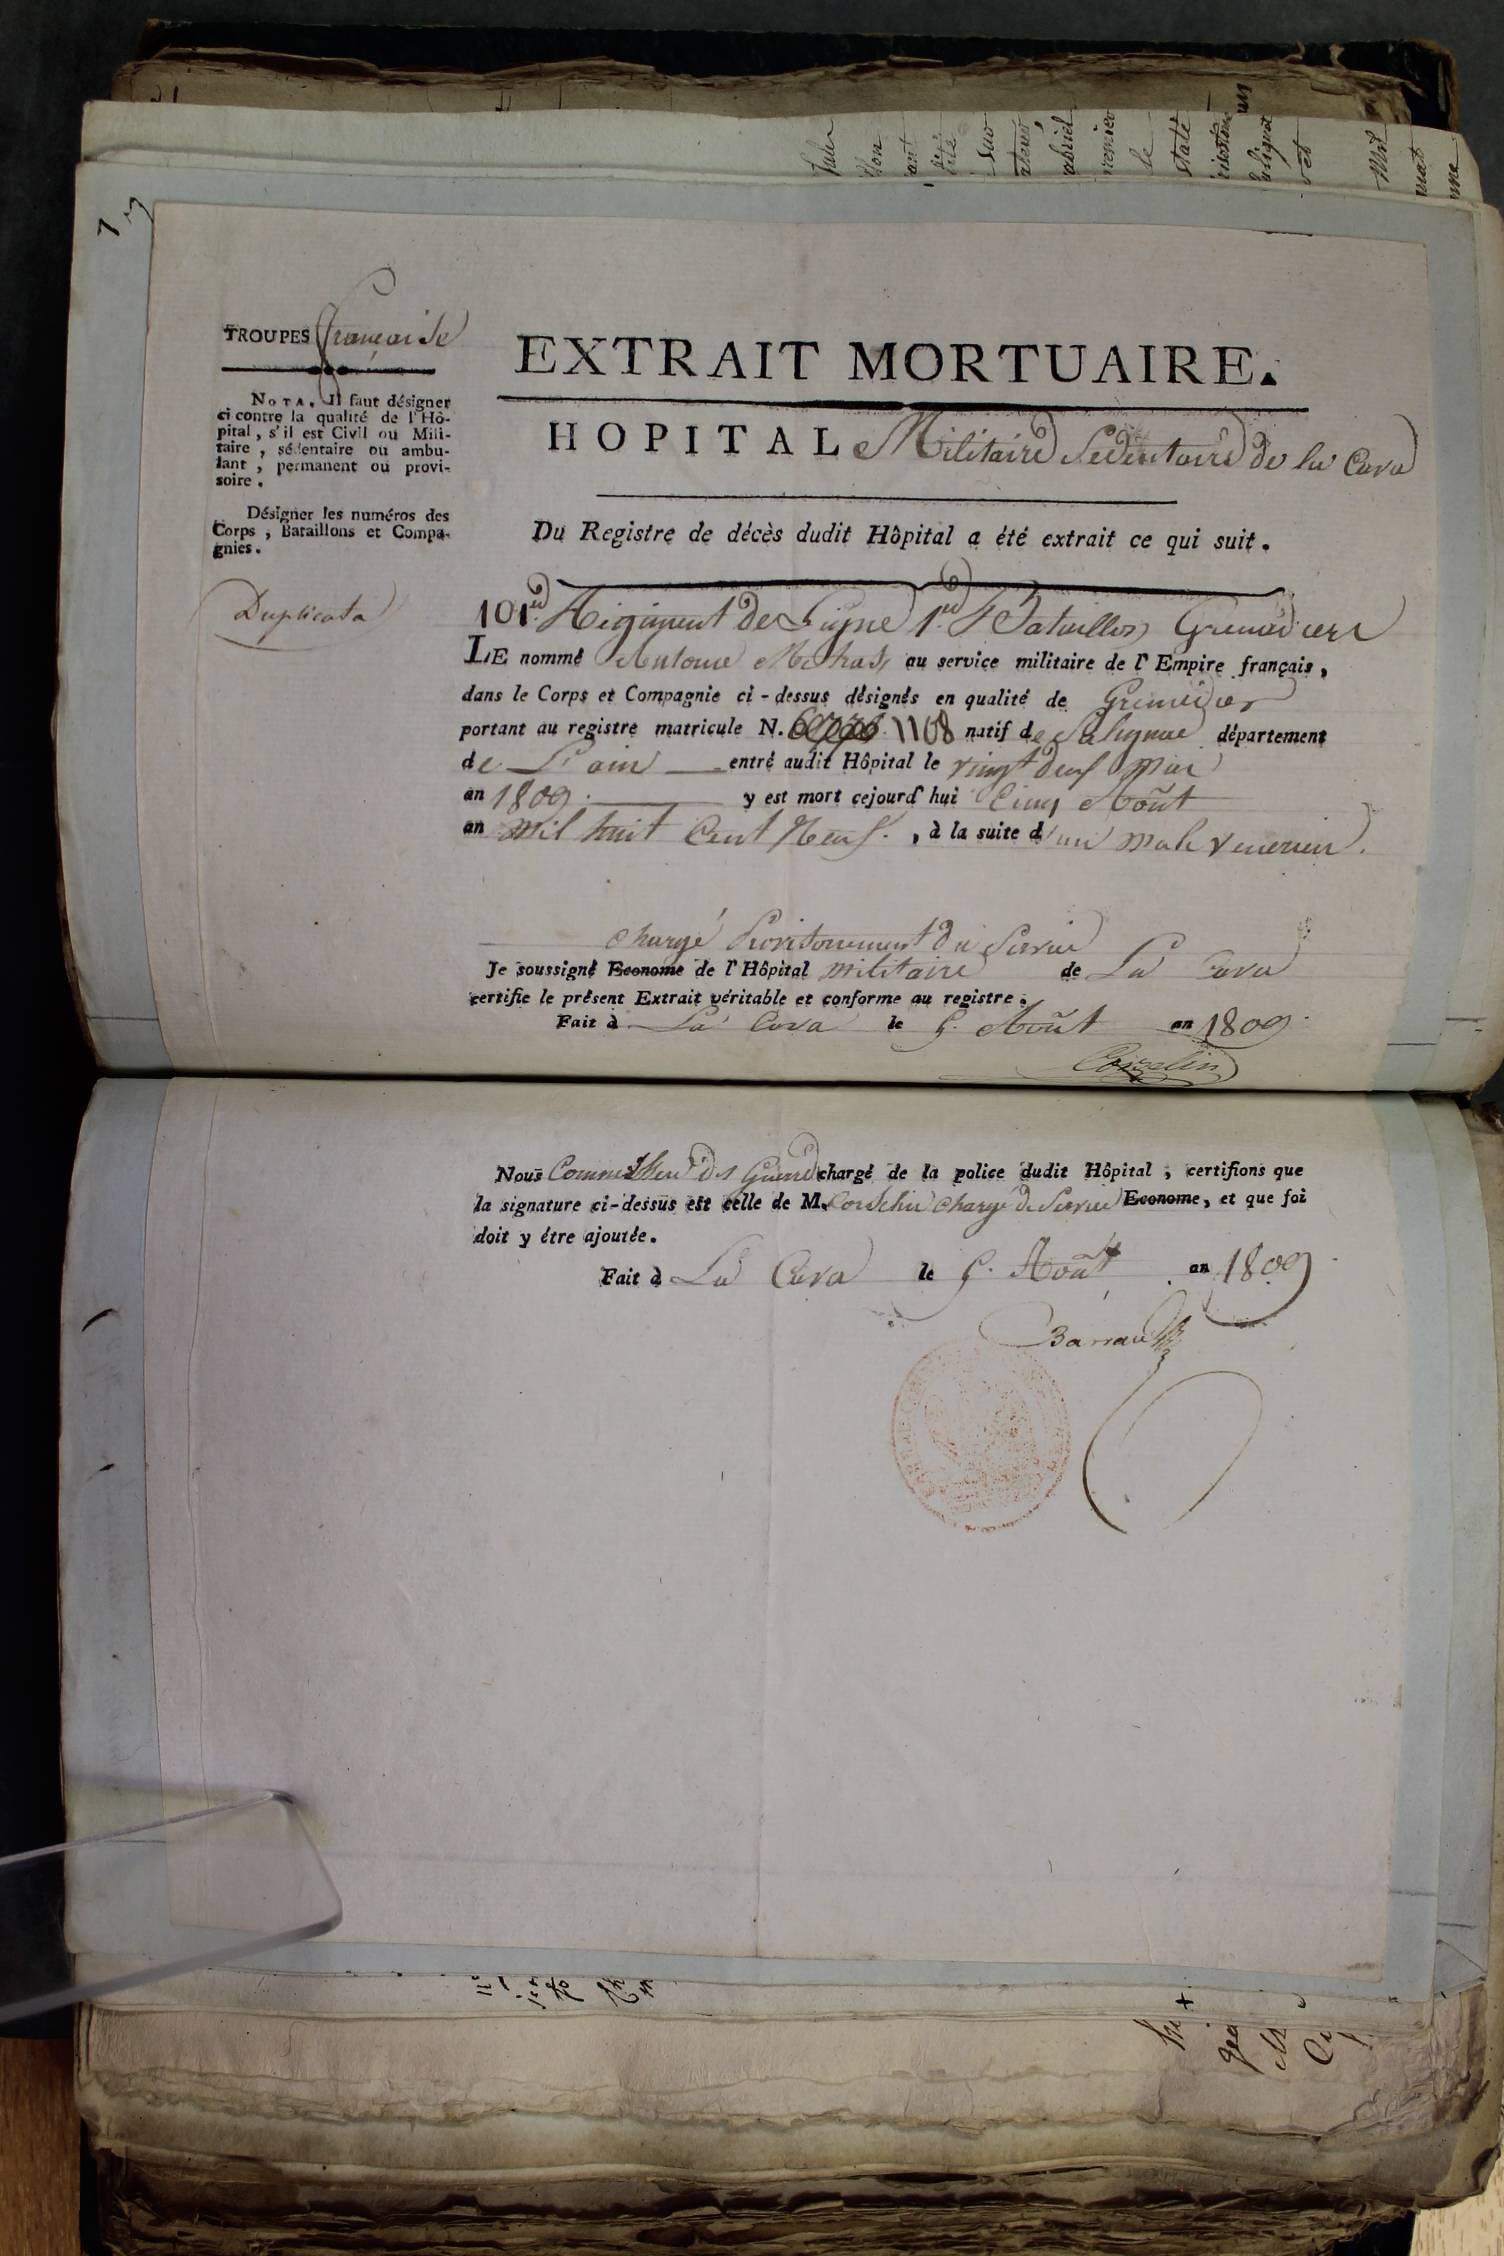 TROUPES française
NOTA. Il faut désigner
ci contre la qualité de l'Hô-
pital, s'il est Civil ou Mili-
taire, sédentaire ou ambu-
lant, permanent ou provi-
soire.
Désigner les numéros des
Corps, Bataillons et Compa-
gnies.
Duplicata
EXTRAIT MORTUAIRE.
HOPITAL Militaire Sédentaire de la Cava
Du Registre de décès dudit Hôpital a été extrait ce qui suit.
101e. Régiment de Ligne 1er Bataillon Grenadiers
LE nommé Antoine au service militaire de l'Empire français,
dans le Corps et Compagnie ci-dessus désignés en qualité de Grenadier
portant au registre matricule N. 1108 natif de département
de L'ain entré audit Hôpital le vingt neuf Mai
an 1809. y est mort cejourd'hui Cinq Août
an Mil huit Cent Neuf. , à la suite d'un Male Venerien.
chargé Provisoirement du Service
Je soussigné Econome de l'Hôpital militaire de La Cava
certifie le présent Extrait véritable et conforme au registre.
Fait à La Cava le 5. Août an 1809.
Nous Commissaire des Guerre chargé de la police dudit Hôpital ; certifions que
la signature ci-dessus est celle de M. chargé du Service Econome, et que foi
doit y être ajoutée.
Fait à La Cava le 5. Août an 1809
Barrault